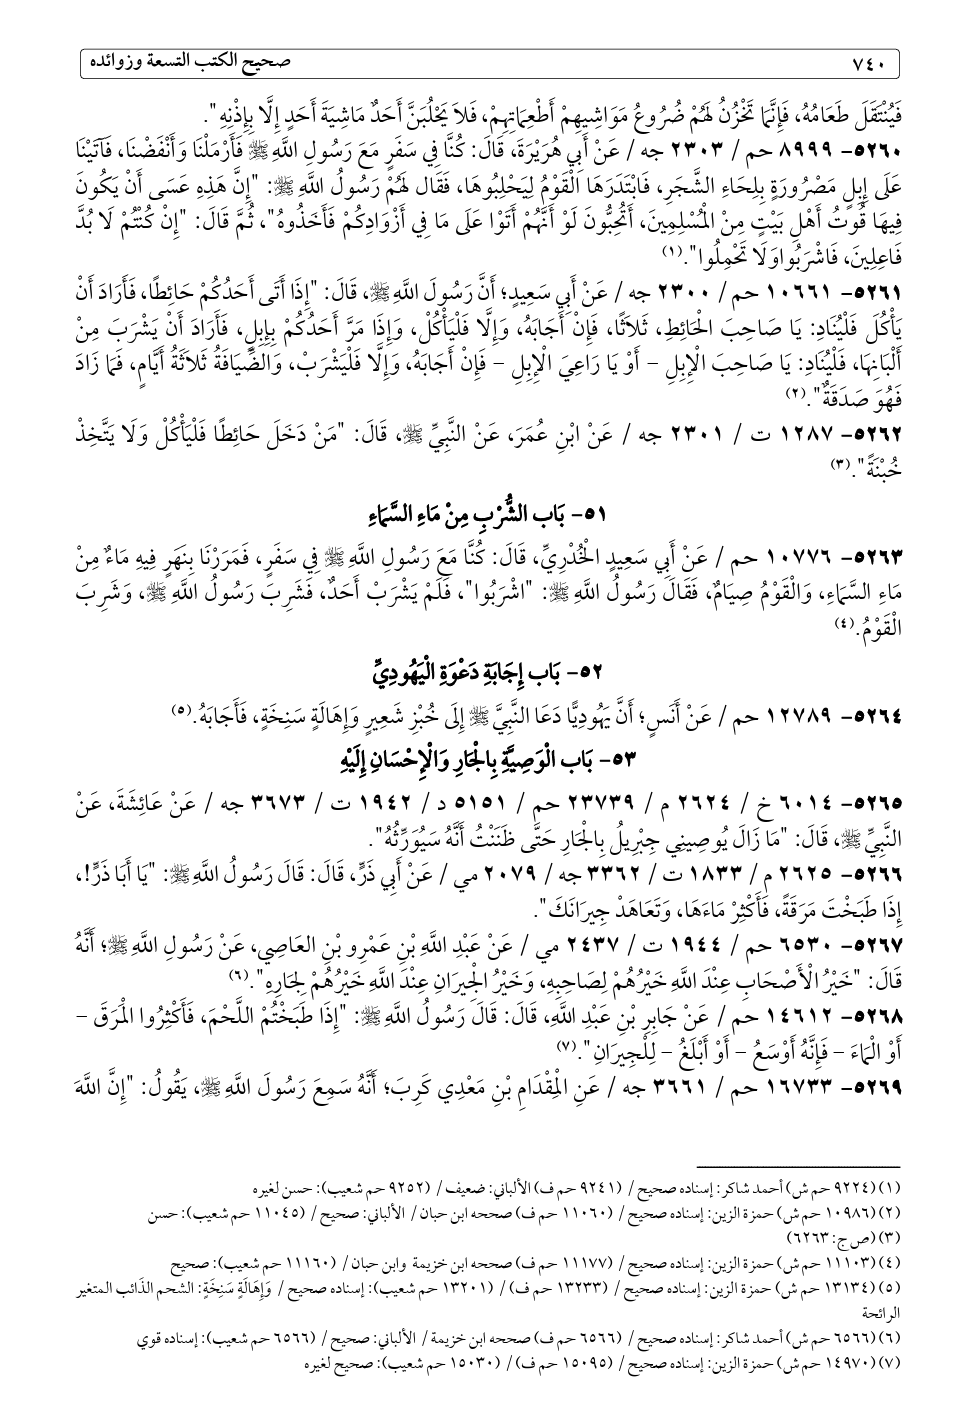 ٧٤٠ صحيح الكتب التسعة وزوائده
فَيُنْتَقَلَ طَعَامُهُ، فَإِنَّمَا تَخْزُنُ لَهُمْ ضُرُوعُ مَوَاشِيهِمْ أَطْعِمَاتِهِمْ، فَلاَ يَحْلُبَنَّ أَحَدٌ مَاشِيَةَ أَحَدٍ إِلَّا بِإِذْنِهِ".
٥٢٦٠- ٨٩٩٩ حم / ٢٣٠٣ جه / عَنْ أَبِي هُرَيْرَةَ، قَالَ: كُنَّا فِي سَفَرٍ مَعَ رَسُولِ اللَّهِ ﷺ فَأَرْمَلْنَا وَأَنْفَضْنَا، فَآتَيْنَا
عَلَى إِبِلٍ مَصْرُورَةٍ بِلِحَاءِ الشَّجَرِ، فَابْتَدَرَهَا الْقَوْمُ لِيَحْلِبُوهَا، فَقَال لَهُمْ رَسُولُ اللَّهِ ﷺ: "إِنَّ هَذِهِ عَسَى أَنْ يَكُونَ
فِيهَا قُوتُ أَهْلِ بَيْتٍ مِنَ الْمُسْلِمِينَ، أَتُحِبُّونَ لَوْ أَنَّهُمْ أَتَوْا عَلَى مَا فِي أَزْوَادِكُمْ فَأَخَذُوهُ"، ثُمَّ قَالَ: "إِنْ كُنْتُمْ لَا بُدَّ
فَاعِلِينَ، فَاشْرَبُوا وَلَا تَحْمِلُوا".(١)
٥٢٦١- ١٠٦٦١ حم / ٢٣٠٠ جه / عَنْ أَبِي سَعِيدٍ؛ أَنَّ رَسُولَ اللَّهِ ﷺ، قَالَ: "إِذَا أَتَى أَحَدُكُمْ حَائِطًا، فَأَرَادَ أَنْ
يَأْكُلَ فَلْيُنَادِ: يَا صَاحِبَ الْحَائِطِ، ثَلَاثًا، فَإِنْ أَجَابَهُ، وَإِلَّا فَلْيَأْكُلْ، وَإِذَا مَرَّ أَحَدُكُمْ بِإِبِلٍ، فَأَرَادَ أَنْ يَشْرَبَ مِنْ
أَلْبَانِهَا، فَلْيُنَادِ: يَا صَاحِبَ الْإِبِلِ – أَوْ يَا رَاعِيَ الْإِبِلِ – فَإِنْ أَجَابَهُ، وَإِلَّا فَلْيَشْرَبْ، وَالضِّيَافَةُ ثَلَاثَةُ أَيَّامٍ، فَمَا زَادَ
فَهُوَ صَدَقَةٌ".(٢)
٥٢٦٢- ١٢٨٧ ت / ٢٣٠١ جه / عَنْ ابْنِ عُمَرَ، عَنْ النَّبِيِّ ﷺ، قَالَ: "مَنْ دَخَلَ حَائِطًا فَلْيَأْكُلْ وَلَا يَتَّخِذْ
خُبْنَةً".(٣)
٥١- بَاب الشُّرْبِ مِنْ مَاءِ السَّمَاءِ
٥٢٦٣- ١٠٧٧٦ حم / عَنْ أَبِي سَعِيدٍ الْخُدْرِيِّ، قَالَ: كُنَّا مَعَ رَسُولِ اللَّهِ ﷺ فِي سَفَرٍ، فَمَرَرْنَا بِنَهَرٍ فِيهِ مَاءٌ مِنْ
مَاءِ السَّمَاءِ، وَالْقَوْمُ صِيَامٌ، فَقَالَ رَسُولُ اللَّهِ ﷺ: "اشْرَبُوا"، فَلَمْ يَشْرَبْ أَحَدٌ، فَشَرِبَ رَسُولُ اللَّهِ ﷺ، وَشَرِبَ
الْقَوْمُ.(٤)
٥٢- بَاب إِجَابَةِ دَعْوَةِ الْيَهُودِيِّ
٥٢٦٤- ١٢٧٨٩ حم / عَنْ أَنَسٍ؛ أَنَّ يَهُودِيًّا دَعَا النَّبِيَّ ﷺ إِلَى خُبْزِ شَعِيرٍ وَإِهَالَةٍ سَنِخَةٍ، فَأَجَابَهُ.(٥)
٥٣- بَاب الْوَصِيَّةِ بِالْجَارِ وَالْإِحْسَانِ إِلَيْهِ
٥٢٦٥- ٦٠١٤ خ / ٢٦٢٤ م / ٢٣٧٣٩ حم / ٥١٥١ د / ١٩٤٢ ت / ٣٦٧٣ جه / عَنْ عَائِشَةَ، عَنْ
النَّبِيِّ ﷺ، قَالَ: "مَا زَالَ يُوصِينِي جِبْرِيلُ بِالْجَارِ حَتَّى ظَنَنْتُ أَنَّهُ سَيُوَرِّثُهُ".
٥٢٦٦- ٢٦٢٥ م / ١٨٣٣ ت / ٣٣٦٢ جه / ٢٠٧٩ مي / عَنْ أَبِي ذَرٍّ، قَالَ: قَالَ رَسُولُ اللَّهِ ﷺ: "يَا أَبَا ذَرٍّ!،
إِذَا طَبَخْتَ مَرَقَةً، فَأَكْثِرْ مَاءَهَا، وَتَعَاهَدْ جِيرَانَكَ".
٥٢٦٧- ٦٥٣٠ حم / ١٩٤٤ ت / ٢٤٣٧ مي / عَنْ عَبْدِ اللَّهِ بْنِ عَمْرِو بْنِ العَاصِي، عَنْ رَسُولِ اللَّهِ ﷺ؛ أَنَّهُ
قَالَ: "خَيْرُ الْأَصْحَابِ عِنْدَ اللَّهِ خَيْرُهُمْ لِصَاحِبِهِ، وَخَيْرُ الْجِيرَانِ عِنْدَ اللَّهِ خَيْرُهُمْ لِجَارِهِ".(٦)
٥٢٦٨- ١٤٦١٢ حم / عَنْ جَابِرِ بْنِ عَبْدِ اللَّهِ، قَالَ: قَالَ رَسُولُ اللَّهِ ﷺ: "إِذَا طَبَخْتُمْ اللَّحْمَ، فَأَكْثِرُوا الْمَرَقَ –
أَوْ الْمَاءَ – فَإِنَّهُ أَوْسَعُ – أَوْ أَبْلَغُ – لِلْجِيرَانِ".(٧)
٥٢٦٩- ١٦٧٣٣ حم / ٣٦٦١ جه / عَنِ الْمِقْدَامِ بْنِ مَعْدِي كَرِبَ؛ أَنَّهُ سَمِعَ رَسُولَ اللَّهِ ﷺ، يَقُولُ: "إِنَّ اللَّهَ
(١) (٩٢٢٤ حم ش) أحمد شاكر: إسناده صحيح / (٩٢٤١ حم ف) الألباني: ضعيف / (٩٢٥٢ حم شعيب): حسن لغيره
(٢) (١٠٩٨٦ حم ش) حمزة الزين: إسناده صحيح / (١١٠٦٠ حم ف) صححه ابن حبان / الألباني: صحيح / (١١٠٤٥ حم شعيب): حسن
(٣) (ص ج: ٦٢٦٣)
(٤) (١١١٠٣ حم ش) حمزة الزين: إسناده صحيح / (١١١٧٧ حم ف) صححه ابن خزيمة وابن حبان / (١١١٦٠ حم شعيب): صحيح
(٥) (١٣١٣٤ حم ش) حمزة الزين: إسناده صحيح / (١٣٢٣٣ حم ف) / (١٣٢٠١ حم شعيب): إسناده صحيح / وَإِهَالَةٍ سَنِخَةٍ: الشحم الذائب المتغير
الرائحة
(٦) (٦٥٦٦ حم ش) أحمد شاكر: إسناده صحيح / (٦٥٦٦ حم ف) صححه ابن خزيمة / الألباني: صحيح / (٦٥٦٦ حم شعيب): إسناده قوي
(٧) (١٤٩٧٠ حم ش) حمزة الزين: إسناده صحيح / (١٥٠٩٥ حم ف) / (١٥٠٣٠ حم شعيب): صحيح لغيره